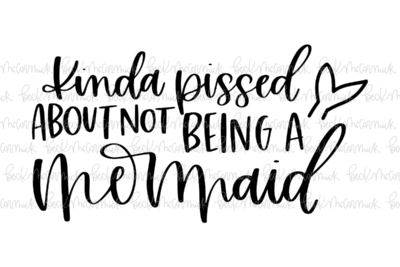 Kinda pissed
ABOUT NOT BEING A
mermaid